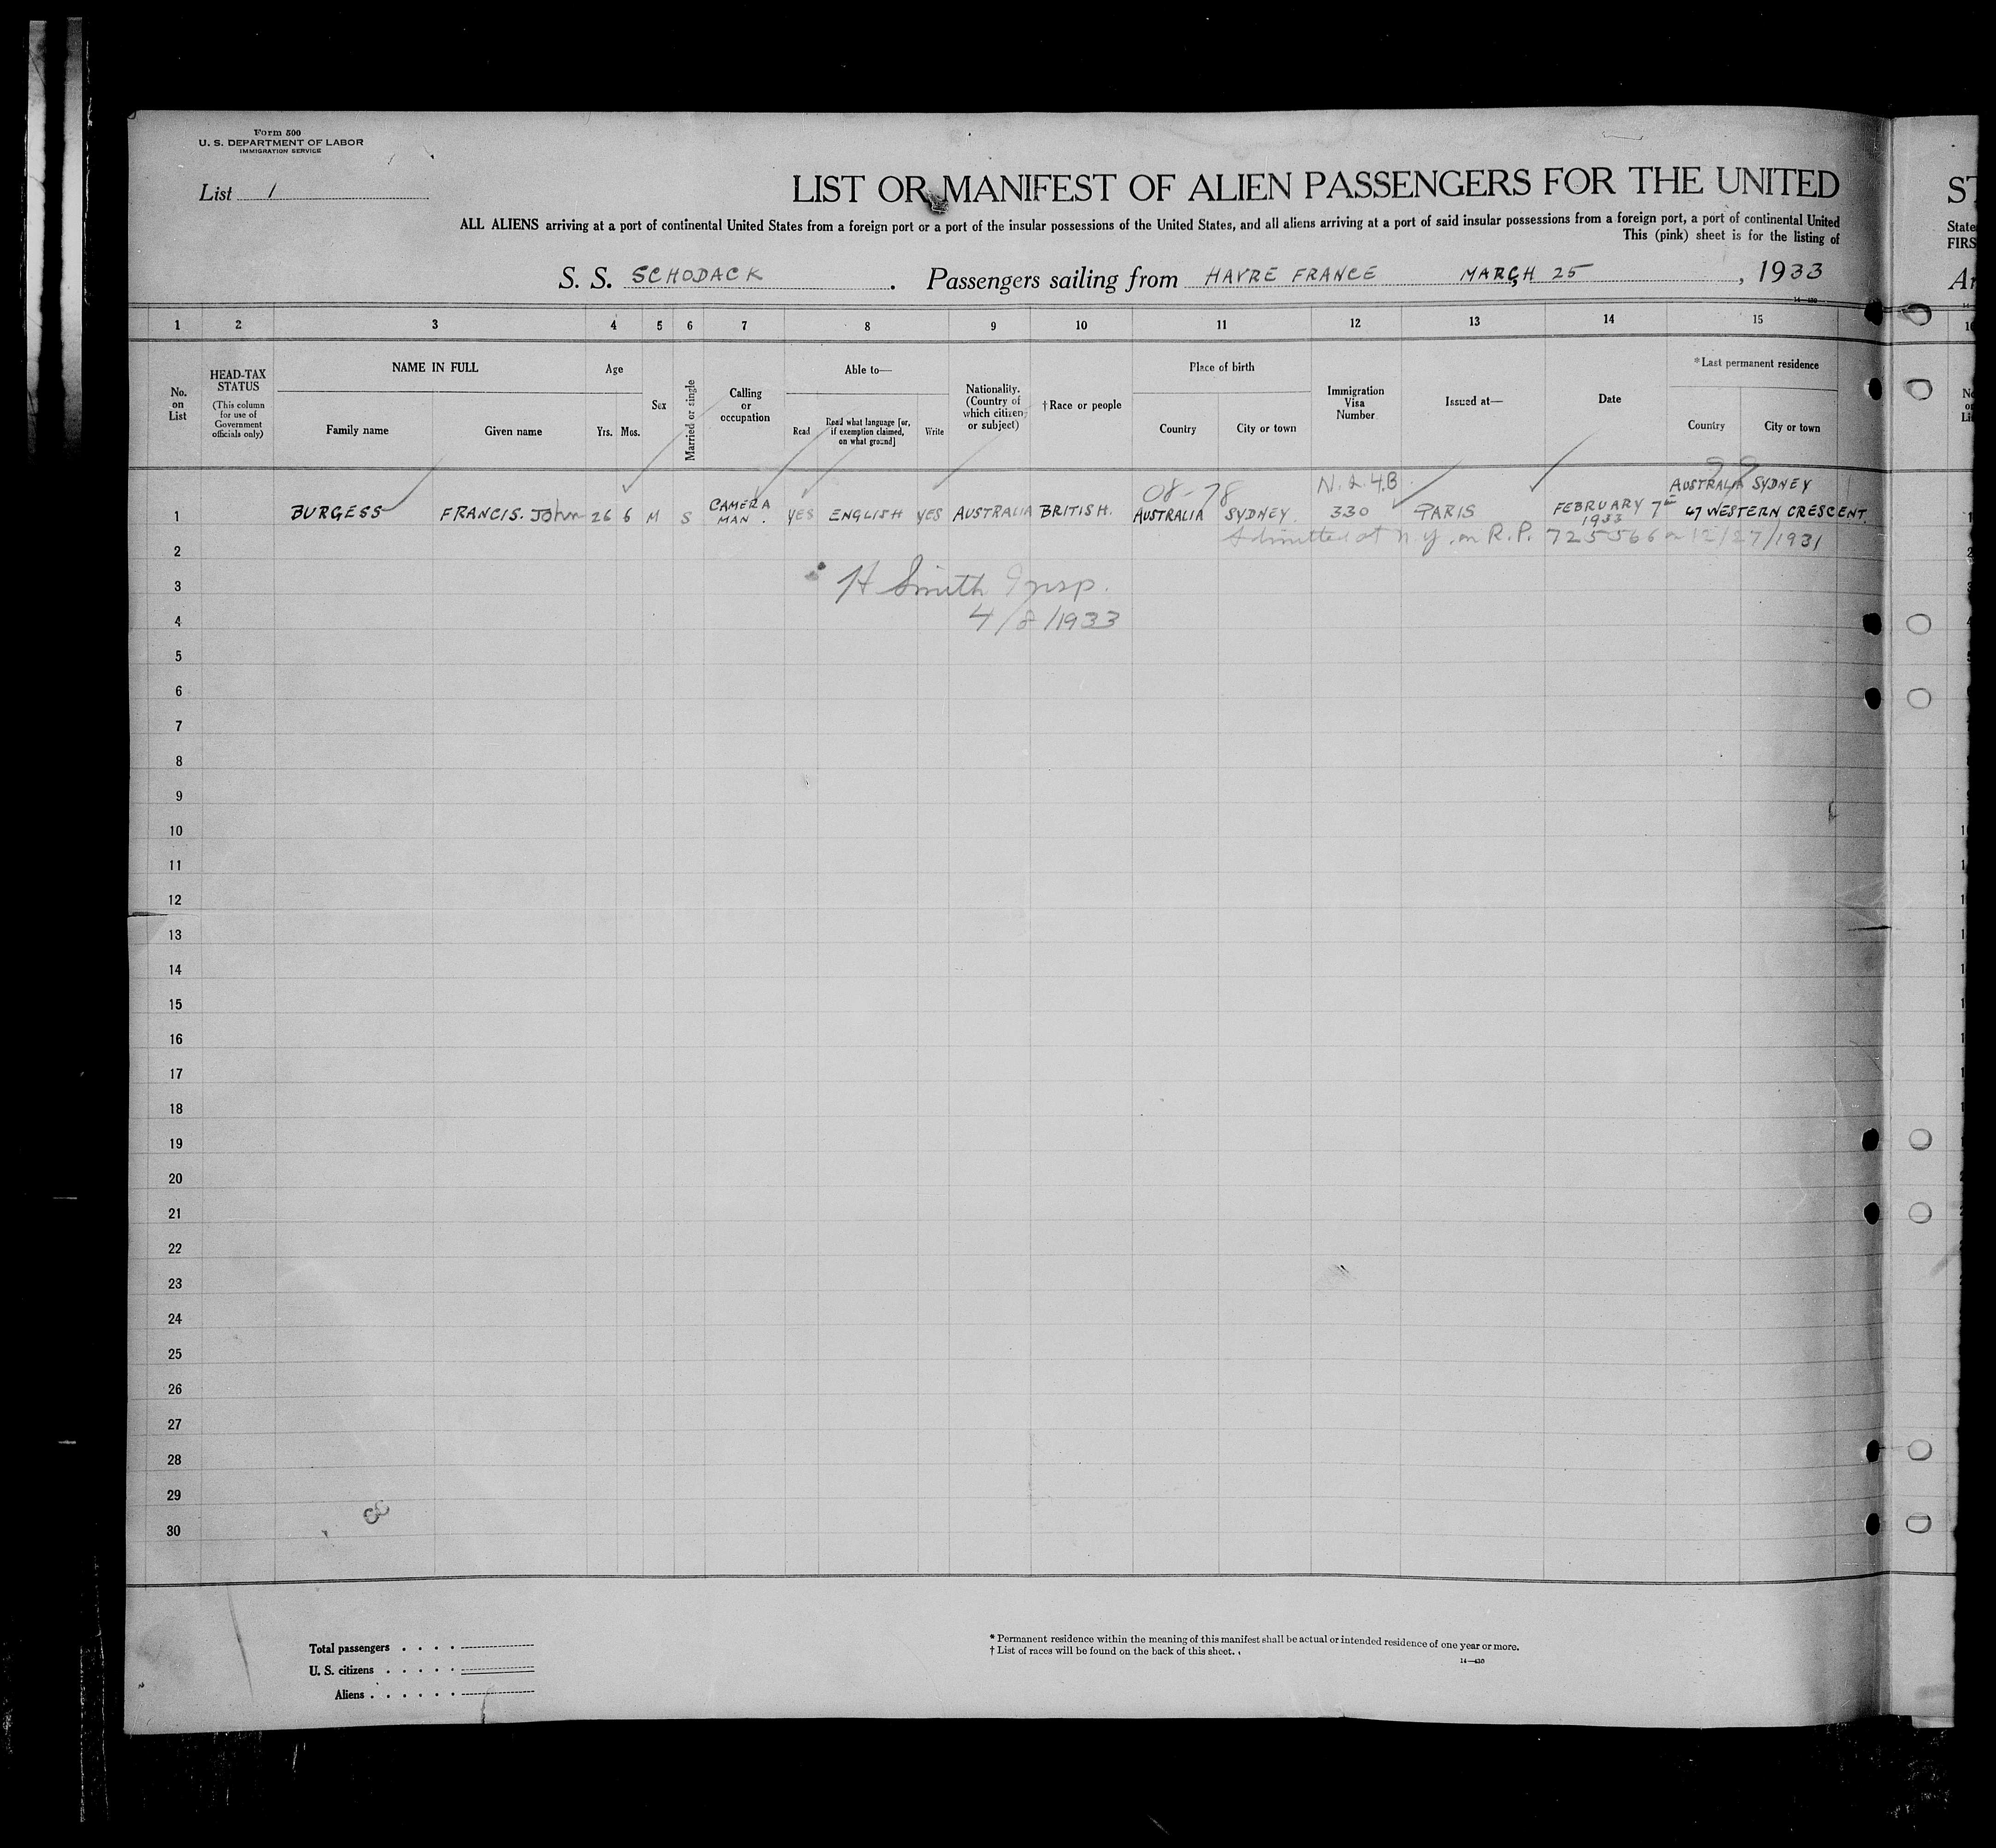 Form 500
U. S. DEPARTMENT OF LABOR
IMMIGRATION SERVICE
List 1
LIST OR MANIFEST OF ALIEN PASSENGERS FOR THE UNITED
ALL ALIENS arriving at a port of continental United States from a foreign port or a port of the insular possessions of the United States, and all aliens arriving at a port of said insular possessions from a foreign port, a port of continental United
This (pink) sheet is for the listing of
S. S. SCHODACK . Passengers sailing from HAVRE FRANCE MARCH 25 , 1933
1 2 3 4 5 6 7 8 9 10 11 12 13 14 15
No. on List
HEAD-TAX STATUS
(This column for use of Government officials only)
NAME IN FULL
Family name Given name
Age
Yrs. Mos.
Sex
Married or single
Calling or occupation
Able to—
Read
Read what language [or, if exemption claimed, on what ground]
Write
Nationality. (Country of which citizen or subject)
† Race or people
Place of birth
Country City or town
Immigration Visa Number
Issued at—
Date
* Last permanent residence
Country City or town
08-78 N.Q.4.B. 99
AUSTRALIA SYDNEY
1 BURGESS FRANCIS. John 26 6 M S CAMERA MAN. YES ENGLISH YES AUSTRALIA BRITISH. AUSTRALIA SYDNEY. 330 PARIS FEBRUARY 7th 1933 47 WESTERN CRESCENT.
Admitted at N.Y. on R.P. 725566 on 12/27/1931
2
3 H Smith Insp.
4 4/8/1933
5
6
7
8
9
10
11
12
13
14
15
16
17
18
19
20
21
22
23
24
25
26
27
28
29
30
Total passengers . . . .
U. S. citizens . . . . .
Aliens . . . . . .
* Permanent residence within the meaning of this manifest shall be actual or intended residence of one year or more.
† List of races will be found on the back of this sheet.
14—430
ST
State
FIRS
Ar